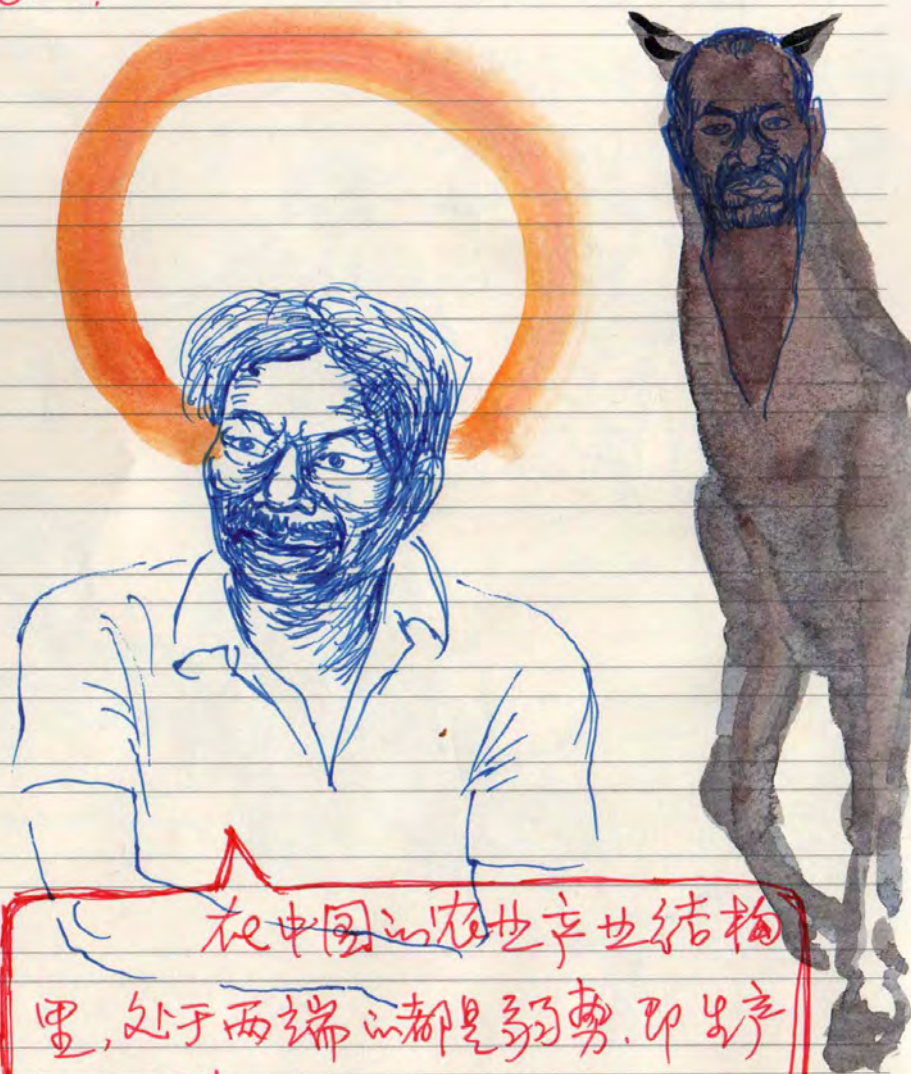 在中国的农业产业结构
里,处于两端的都是弱势.即生产